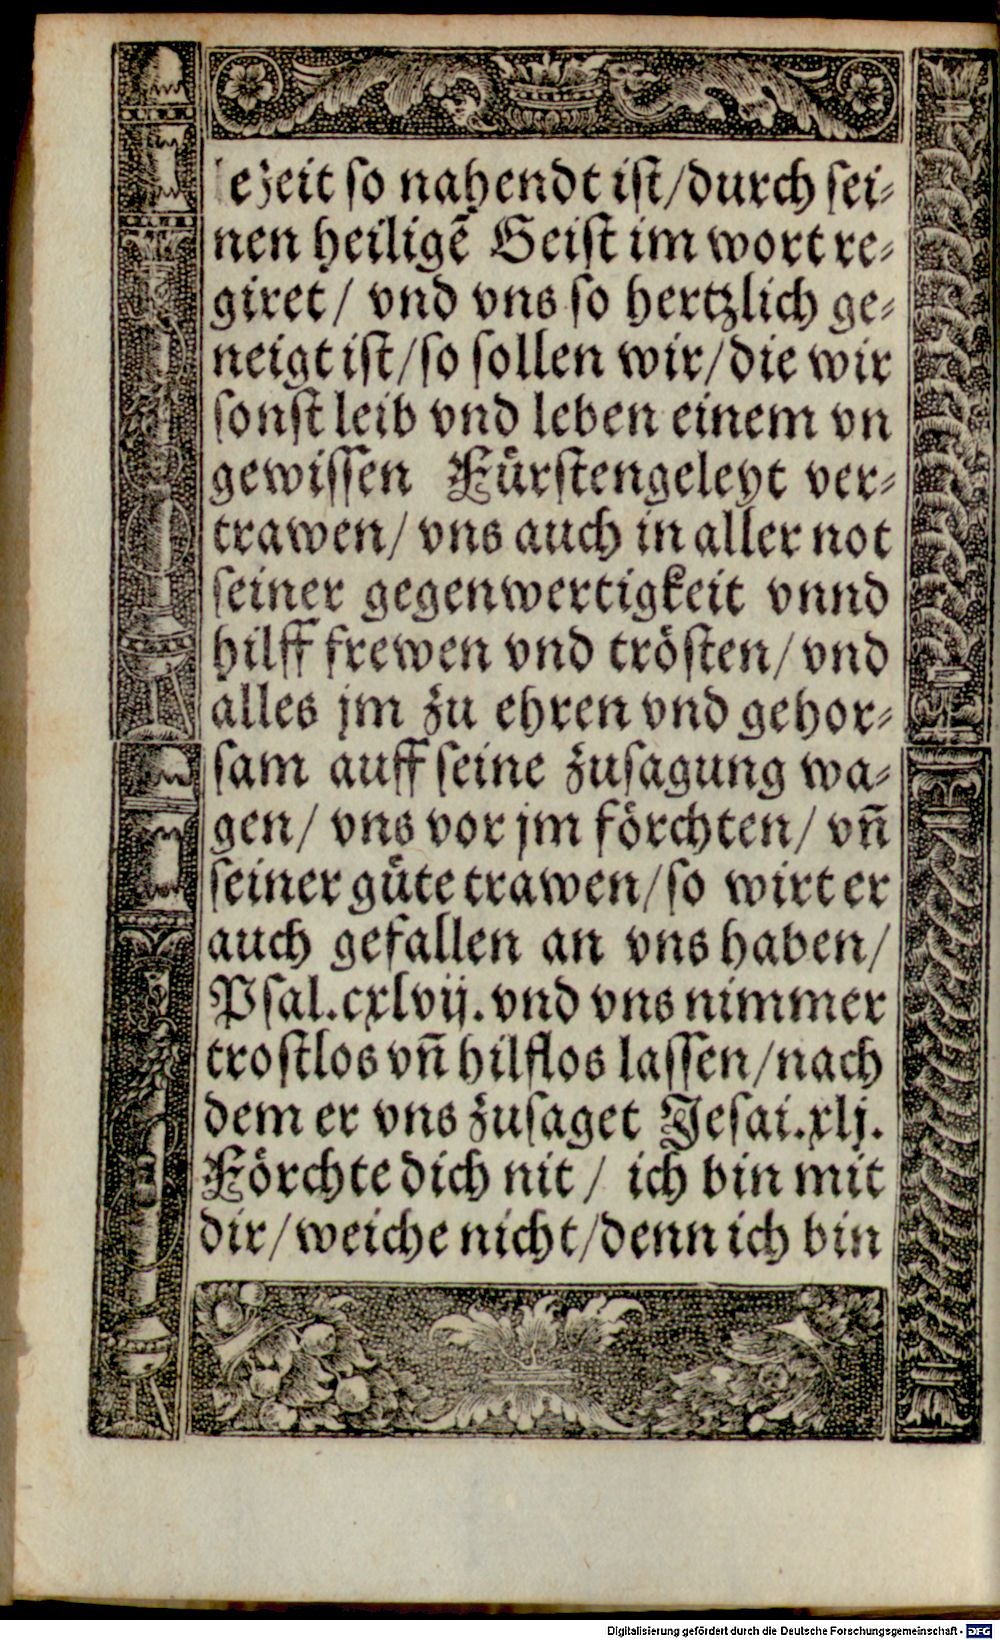 le zeit so nahendt ist/durch sei⸗
nen heiligẽ Geist im wort re⸗
giret/ vnd vns so hertzlich ge⸗
neigt ist/so sollen wir/die wir
sonst leib vnd leben einem vn
gewissen Fürstengeleyt ver⸗
trawen/ vns auch in aller not
seiner gegenwertigkeit vnnd
hilff frewen vnd trösten/ vnd
alles jm zu ehren vnd gehor⸗
sam auff seine zusagung wa⸗
gen/ vns vor jm förchten/ vñ
seiner güte trawen/so wirt er
auch gefallen an vns haben/
Psal.cxlvij. vnd vns nimmer
trostlos vñ hilflos lassen/nach
dem er vns zusaget Jesai.xlj.
Förchte dich nit/ ich bin mit
dir/weiche nicht/denn ich bin
Digitalisierung gefördert durch die Deutsche Forschungsgemeinschaft - DFG